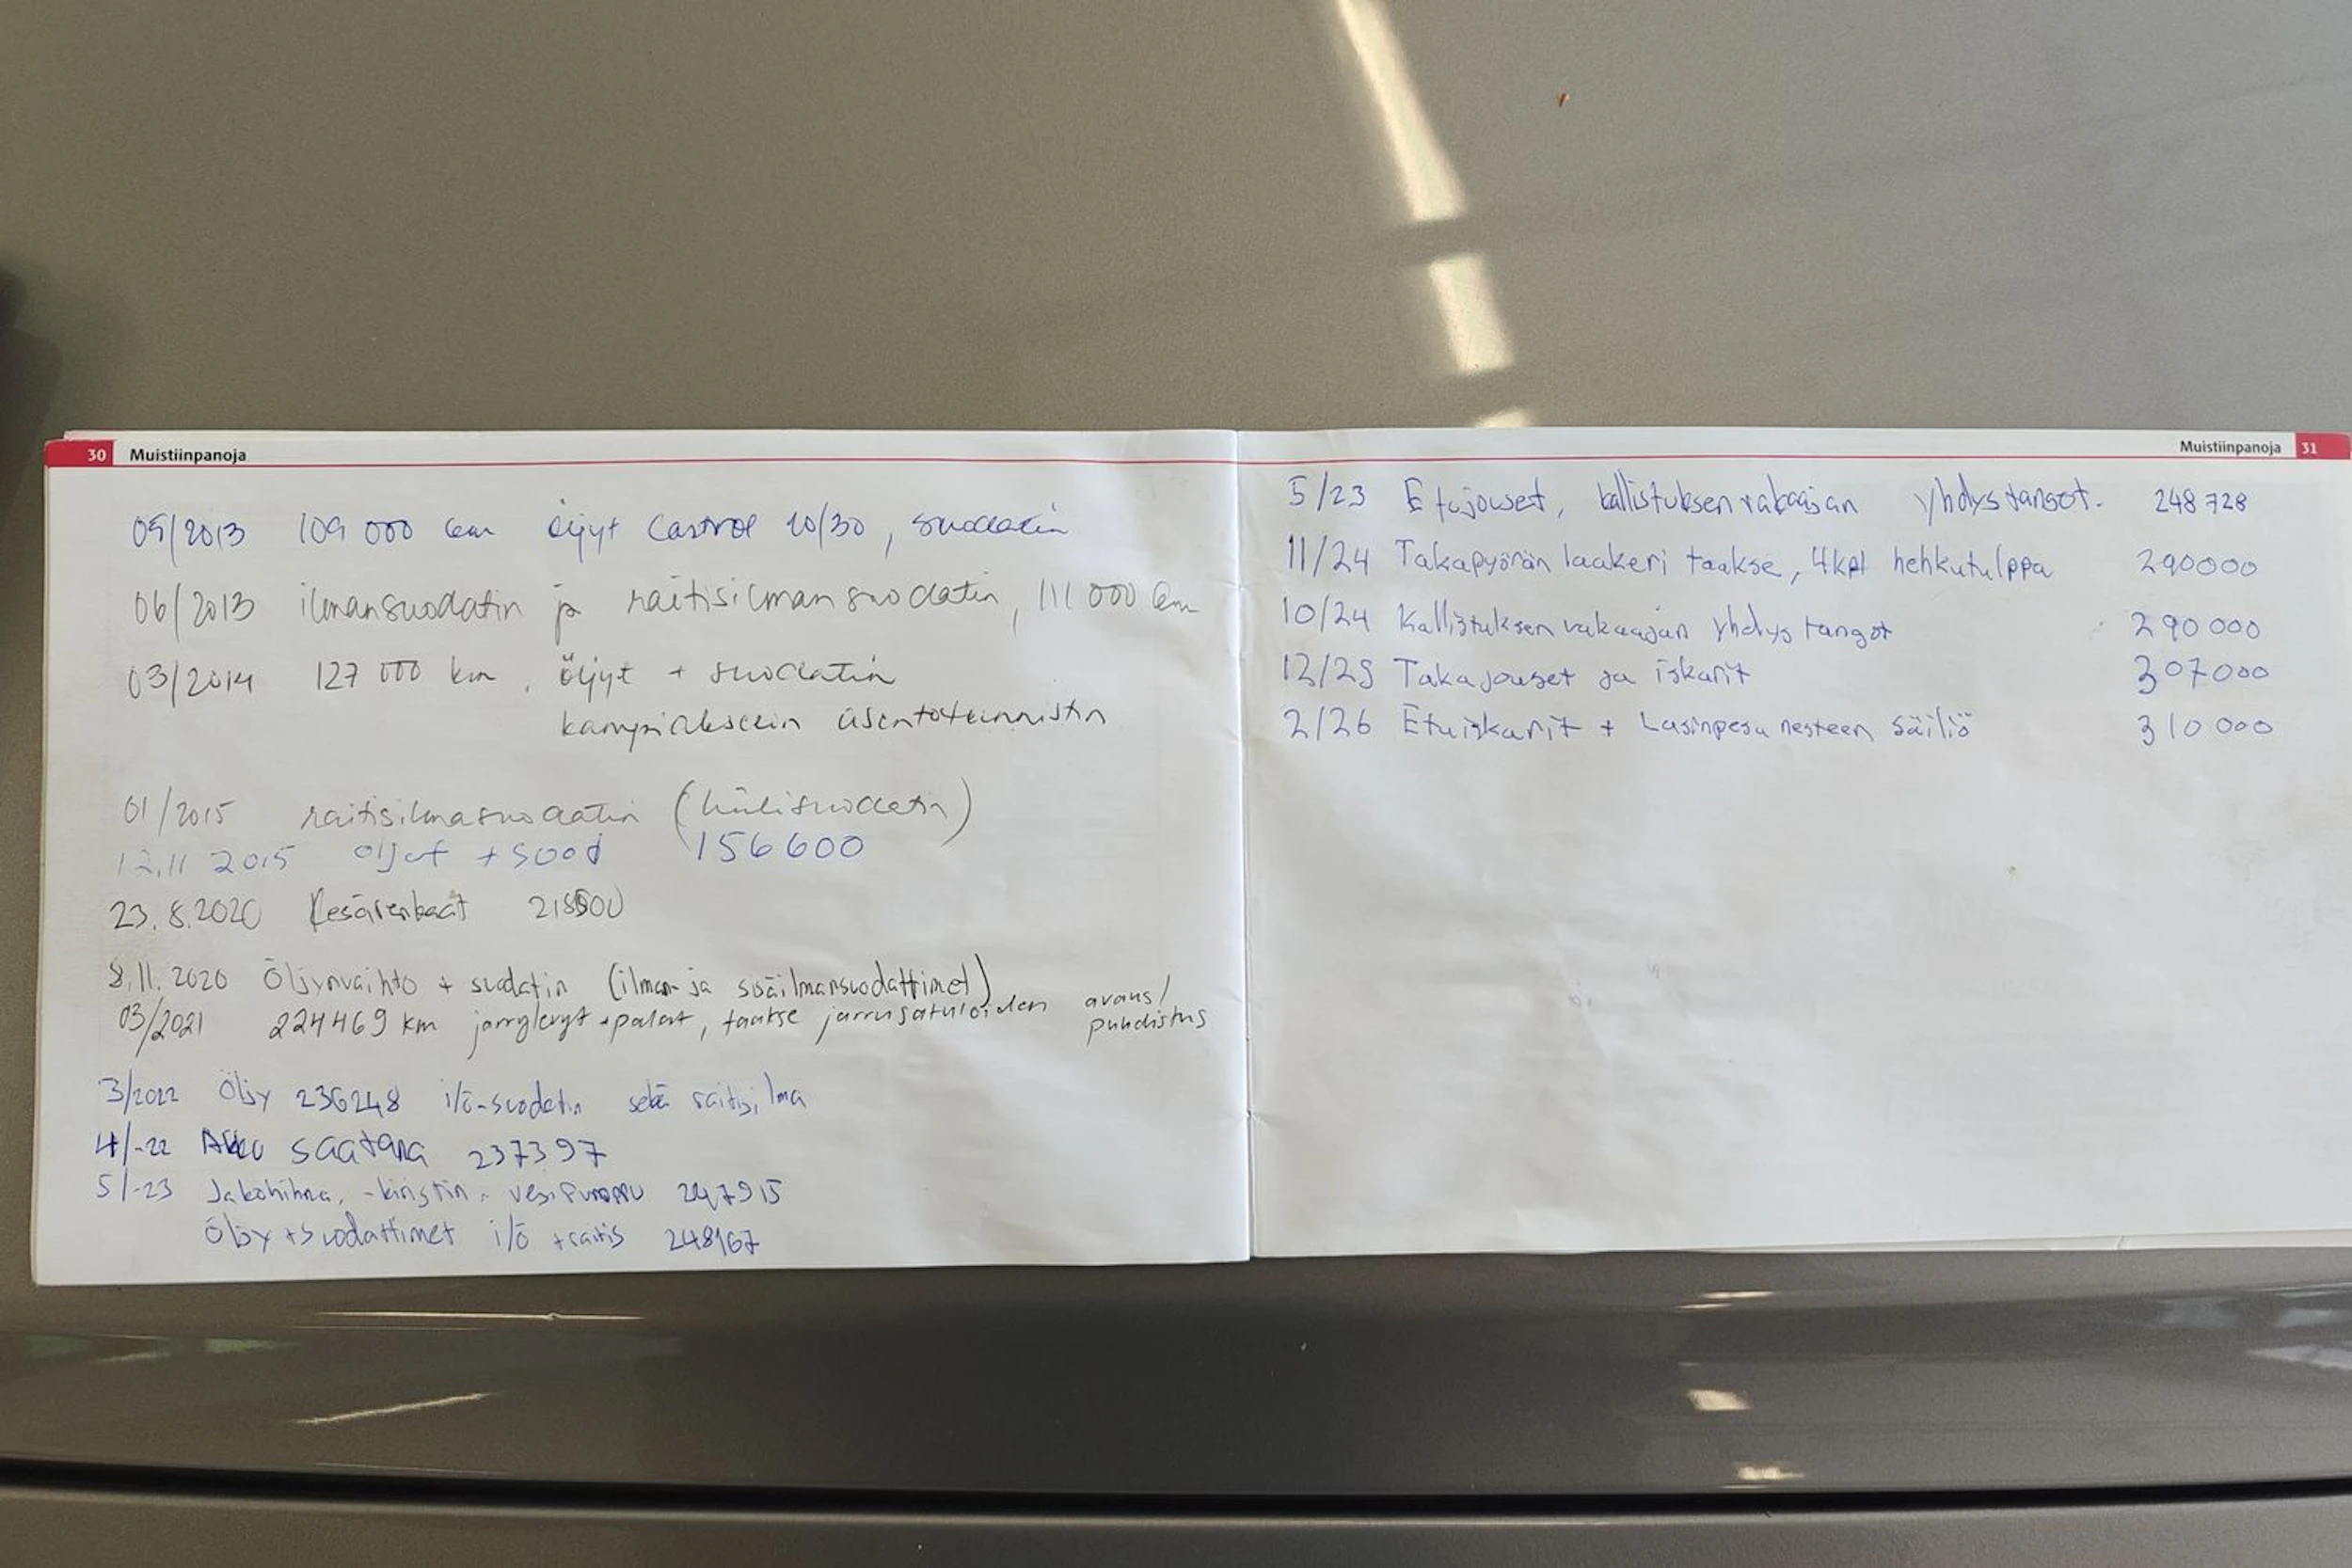 30 Muistiinpanoja
05/2013 109 000 km öljyt Castrol 10/30, suodatin
06/2013 ilmansuodatin ja raitisilmansuodatin, 111 000 km
03/2014 127 000 km, öljyt + suodatin
kampiakselin asentotunnistin
01/2015 raitisilmasuodatin (hiilisuodatin)
12.11 2015 öljyt + suod 156600
23.8.2020 Kesärenkaat
8.11.2020 Öljynvaihto + suodatin (ilman- ja sisäilmansuodattimet)
03/2021 224469 km jarrylevyt + palat, taakse jarrusatuloiden avaus/
puhdistus
3/2022 Öljy 236248 i/ö-suodatin sekä raitisilma
4/-22 Akku saatana 237397
5/-23 Jakohihna, -kiristin, vesipumppu 247915
Öljy + suodattimet i/ö + raitis 248167
Muistiinpanoja 31
5/23 Etujouset, kallistuksenvakaajan yhdystangot. 248 728
11/24 Takapyörän laakeri taakse, 4kpl hehkutulppa 290000
10/24 Kallistuksenvakaajan yhdystangot 290 000
12/25 Takajouset ja iskarit 307000
2/26 Etuiskarit + Lasinpesu nesteen säiliö 310 000